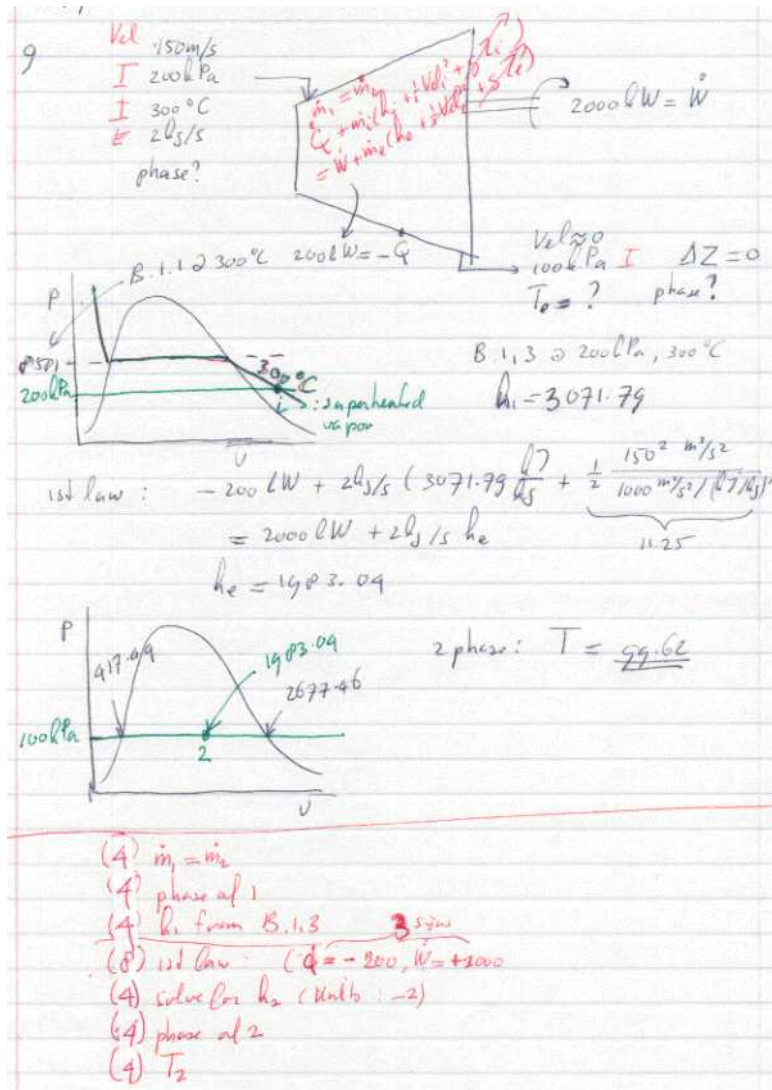 9
Vel 150m/s
I 200kPa
I 300°C
2kg/s
phase?
ṁ₁ = ṁ₂
Q̇ + ṁᵢ(hᵢ + ½Velᵢ² + gZᵢ)
= Ẇ + ṁₑ(hₑ + ½Velₑ² + gZₑ)
2000kW = Ẇ
200kW = -Q̇
Vel≈0
100kPa I ΔZ = 0
Tₑ = ? phase?
B.1.1 @ 300°C
P
8581
300°C
200kPa
i
: superheated
vapor
υ
B.1.3 @ 200kPa, 300°C
h₁ = 3071.79
1st law : -200 kW + 2kg/s ( 3071.79 kJ/kg + 1/2 150² m²/s² / 1000 m²/s²/(kJ/kg))
11.25
= 2000kW + 2kg/s hₑ
hₑ = 1983.04
P
417.44
1983.04
2677.46
100kPa
2
υ
2 phase: T = 99.62
(4) ṁ₁ = ṁ₂
(4) phase at 1
(4) h₁ from B.1.3
3 signs
(8) 1st law : (Q̇ = -200, Ẇ = +2000
(4) solve for h₂ (Units : -2)
(4) phase at 2
(4) T₂